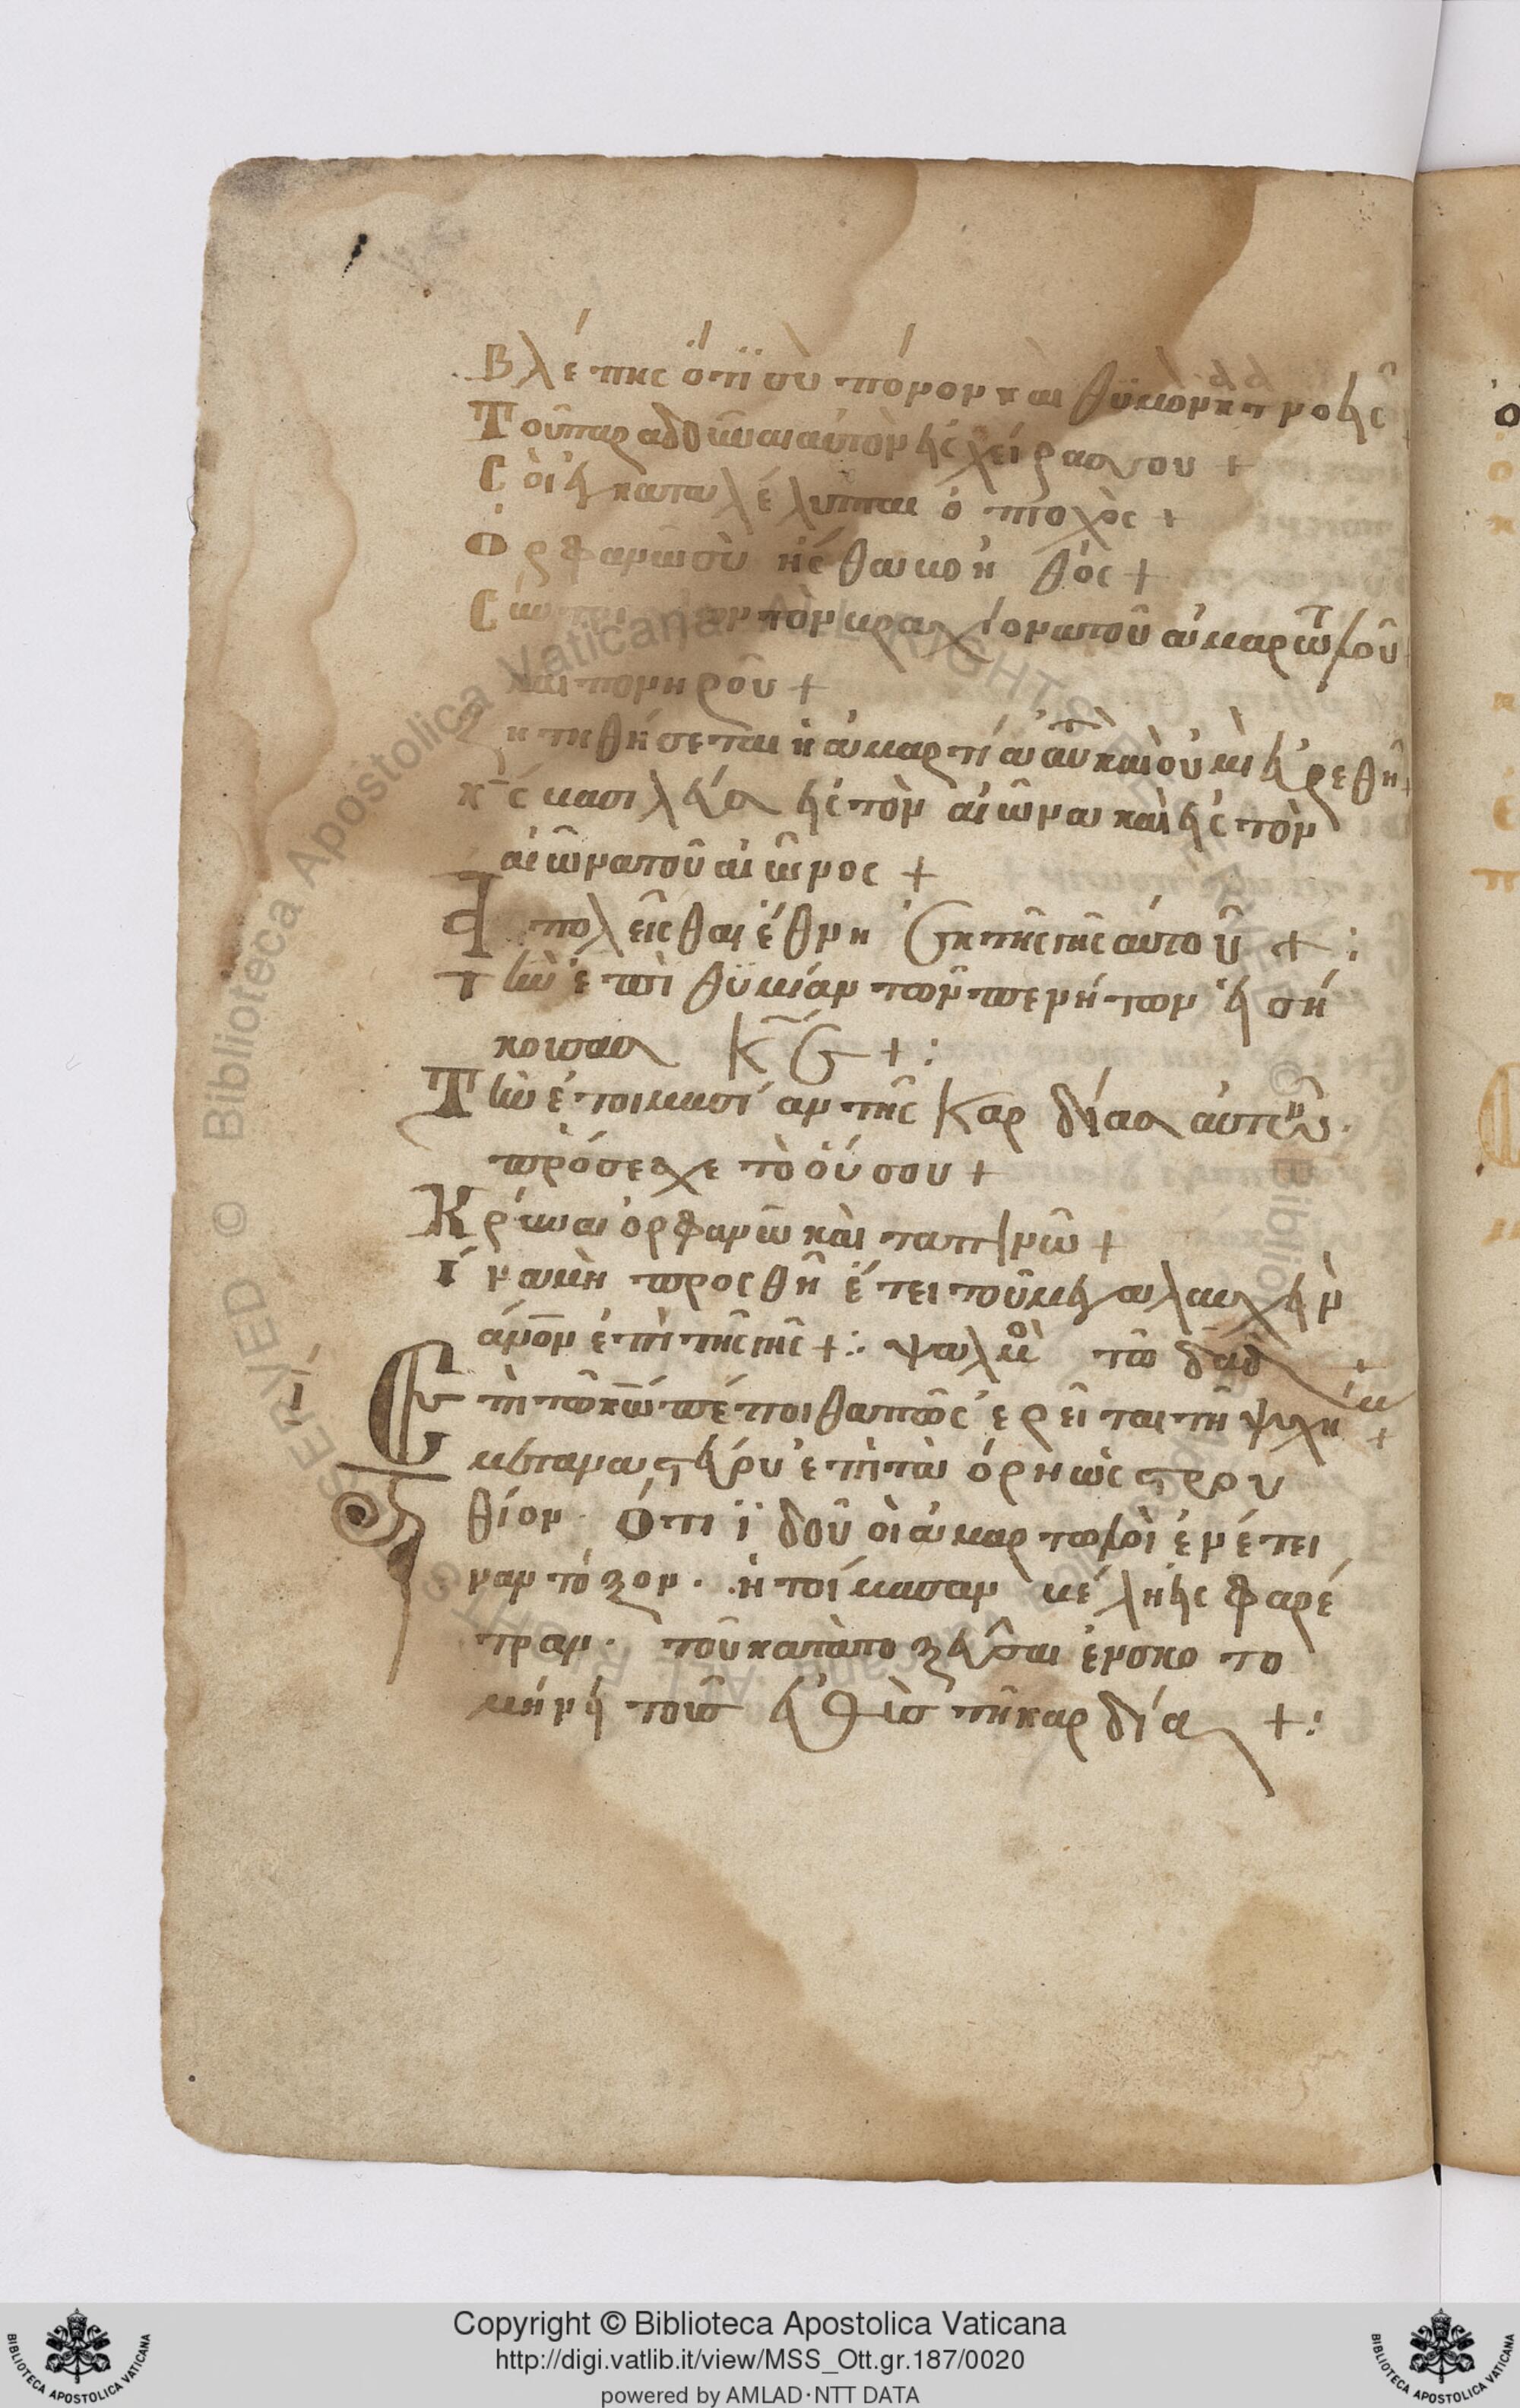 Βλέπης ὅτι σὺ πόνον καὶ θϋμὸν κατανοεῖς
Τοῦ παραδοῦναι αὐτὸν εἰς χείρας σου +
Σὸι ἐγκαταλέλυπται ὁ πτοχὸς +
Ὀρφανῶ σὺ ἦσθα βοηθός +
τὸν βραχίονα τοῦ ἁμαρτωλοῦ
καὶ πονηροῦ +
Ζητηθήσεται ἡ ἁμαρτία αὐτοῦ καὶ οὐ μὴ εὑρεθῆ +
Κς βασιλεύς εἰς τὸν αἰῶνα καὶ εἰς τὸν
αἰῶνα τοῦ αἰῶνος +
Ἀπολεῖσθαι ἔθνη ἐκ τῆς γῆς αὐτοῦ + :
Τὴν ἐπιθϋμίαν τῶν πενήτων εἰσή
κουσας Κε + :
Τὴν ἑτοιμασίαν τῆς καρδίας αὐτῶν
πρόσεχε τὸ οὖς σου +
Κρίναι ὀρφανῶ καὶ ταπεινῶ +
Ἵνα μὴ προσθῆ ἔτει τοῦ μεγαλαυχεῖν
ἄνον ἐπὶ τῆς γῆς + : ψαλμὸ τῶ δαδ
ι
Ἐπὶ τῶ κω πέποιθα πῶς ἐρεῖται τῆ ψυχῆ
μεταναστεύου ἐπὶ τὰ ὄρη ὡς στρου
θίον. Ὅτι ϊδοῦ οἱ ἁμαρτωλοὶ ἐνέτει
ναν τόξον. ἡτοίμασαν βέλη εἰς φαρέ
τραν. τοῦ κατατοξεῦσαι ἐν σκοτο
μήνη τοὺς εὐθεῖς τῆ καρδία + :
Copyright © Biblioteca Apostolica Vaticana
http://digi.vatlib.it/view/MSS_Ott.gr.187/0020
powered by AMLAD·NTT DATA